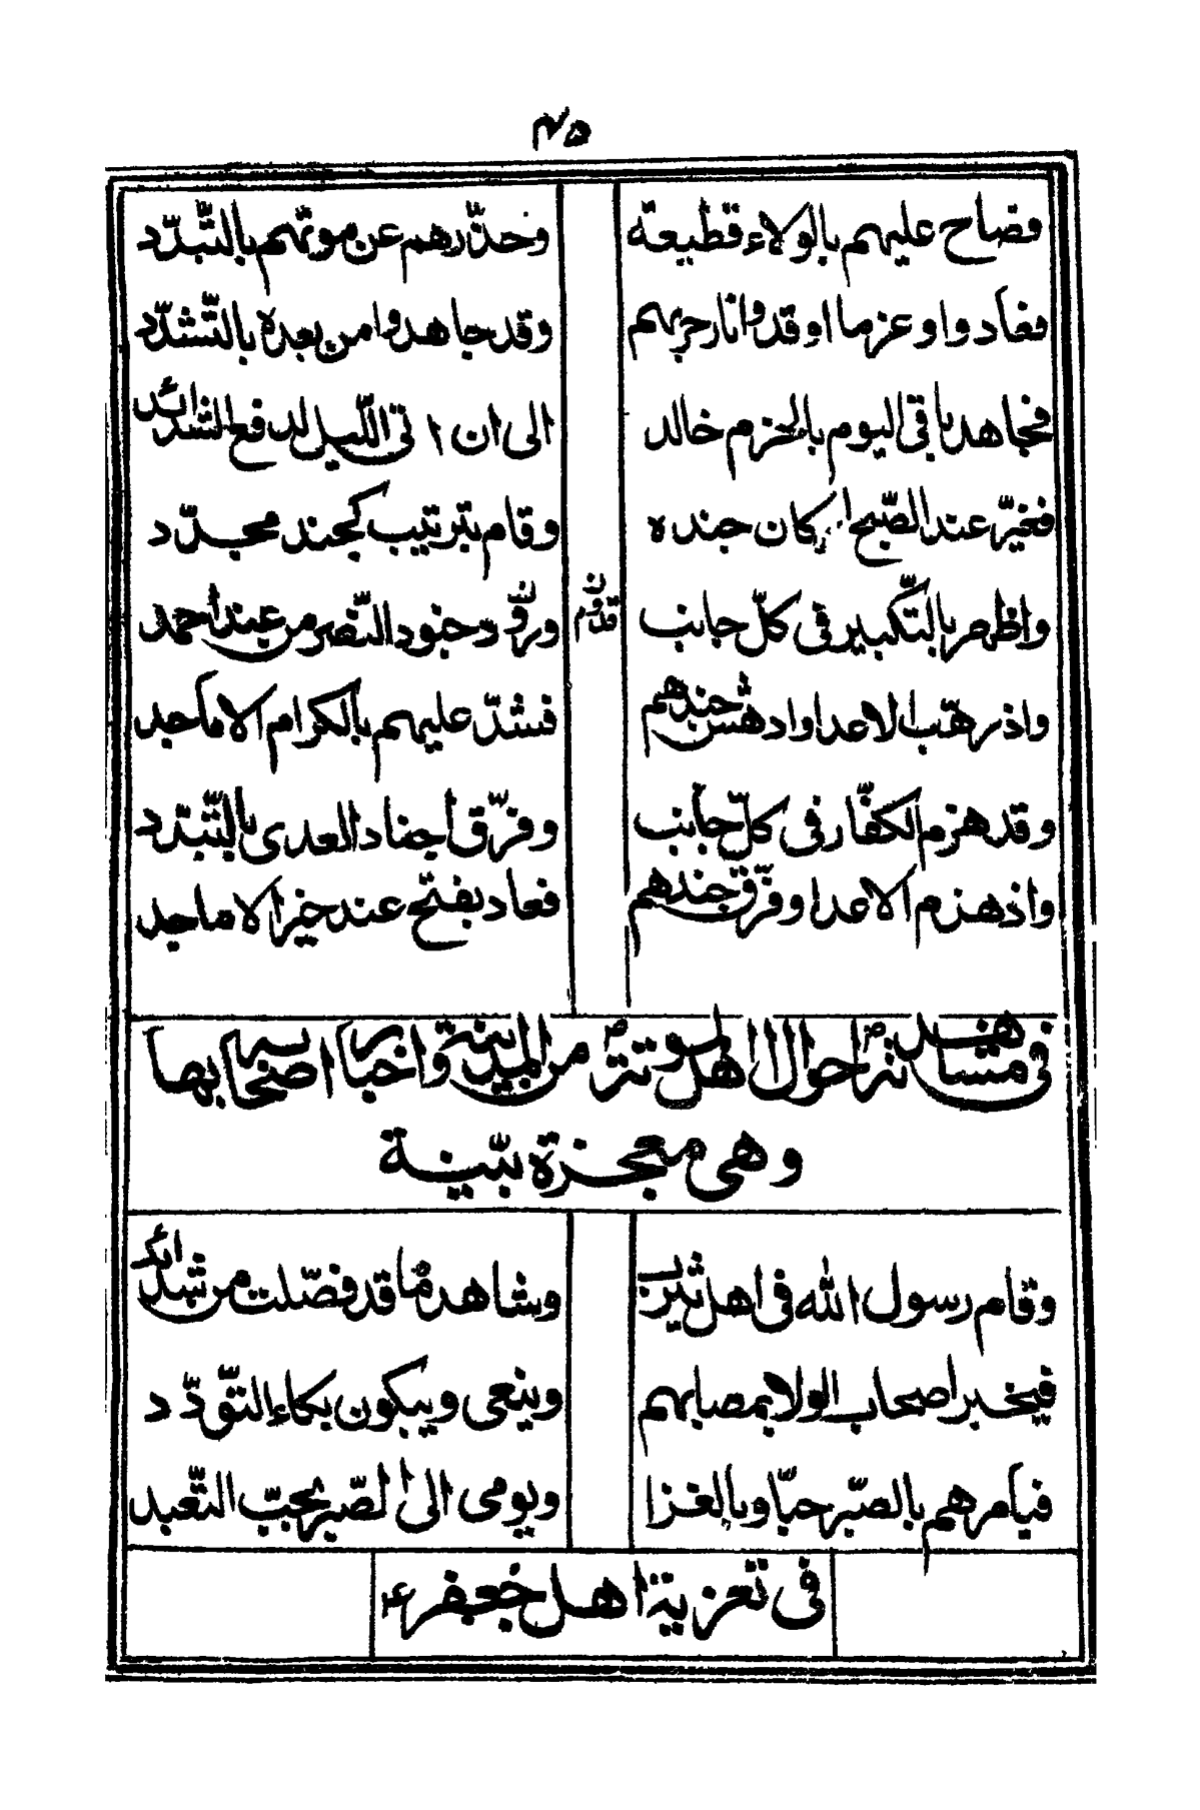 ٤٥
فصاح عليهم بالولاء قطيعة وحذّرهم عن موتهم بالتّبدّد
فعادوا وعزما اوقدوا نار حربهم وقد جاهدوا من بعده بالتّشدّد
فجاهد باقى اليوم بالحزم خالد الى ان اتى اللّيل لدفع الشدائد
فغيّر عند الصّبح اركان جنده وقام بترتيب كجند مجدّد
واظهر بالتّكبير فى كلّ جانب قدّام ورود جنود النّصر من عند احمد
واذ رهّب الاعدا وادهش جندهم فشدّ عليهم بالكرام الاماجد
وقد هزم الكفّار فى كلّ جانب وفرّق اجناد العدى بالتّبدّد
واذ هزم الاعدا وفرّق جندهم فعاد بفتح عند خير الاماجد
فى مشاهدته ص احوال اهل موتة من المدينة واخباره اصحابه بها
وهى معجزة بيّنة
وقام رسول الله فى اهل يثرب وشاهد ما قد فصّلت من شدائد
فيخبر اصحاب الولا بمصابهم وينعى ويبكون بكاء التّودّد
فيامرهم بالصّبر حبّا وبالعزا ويومى الى الصّبر بحبّ التّعبد
فى تعزية اهل جعفر ع